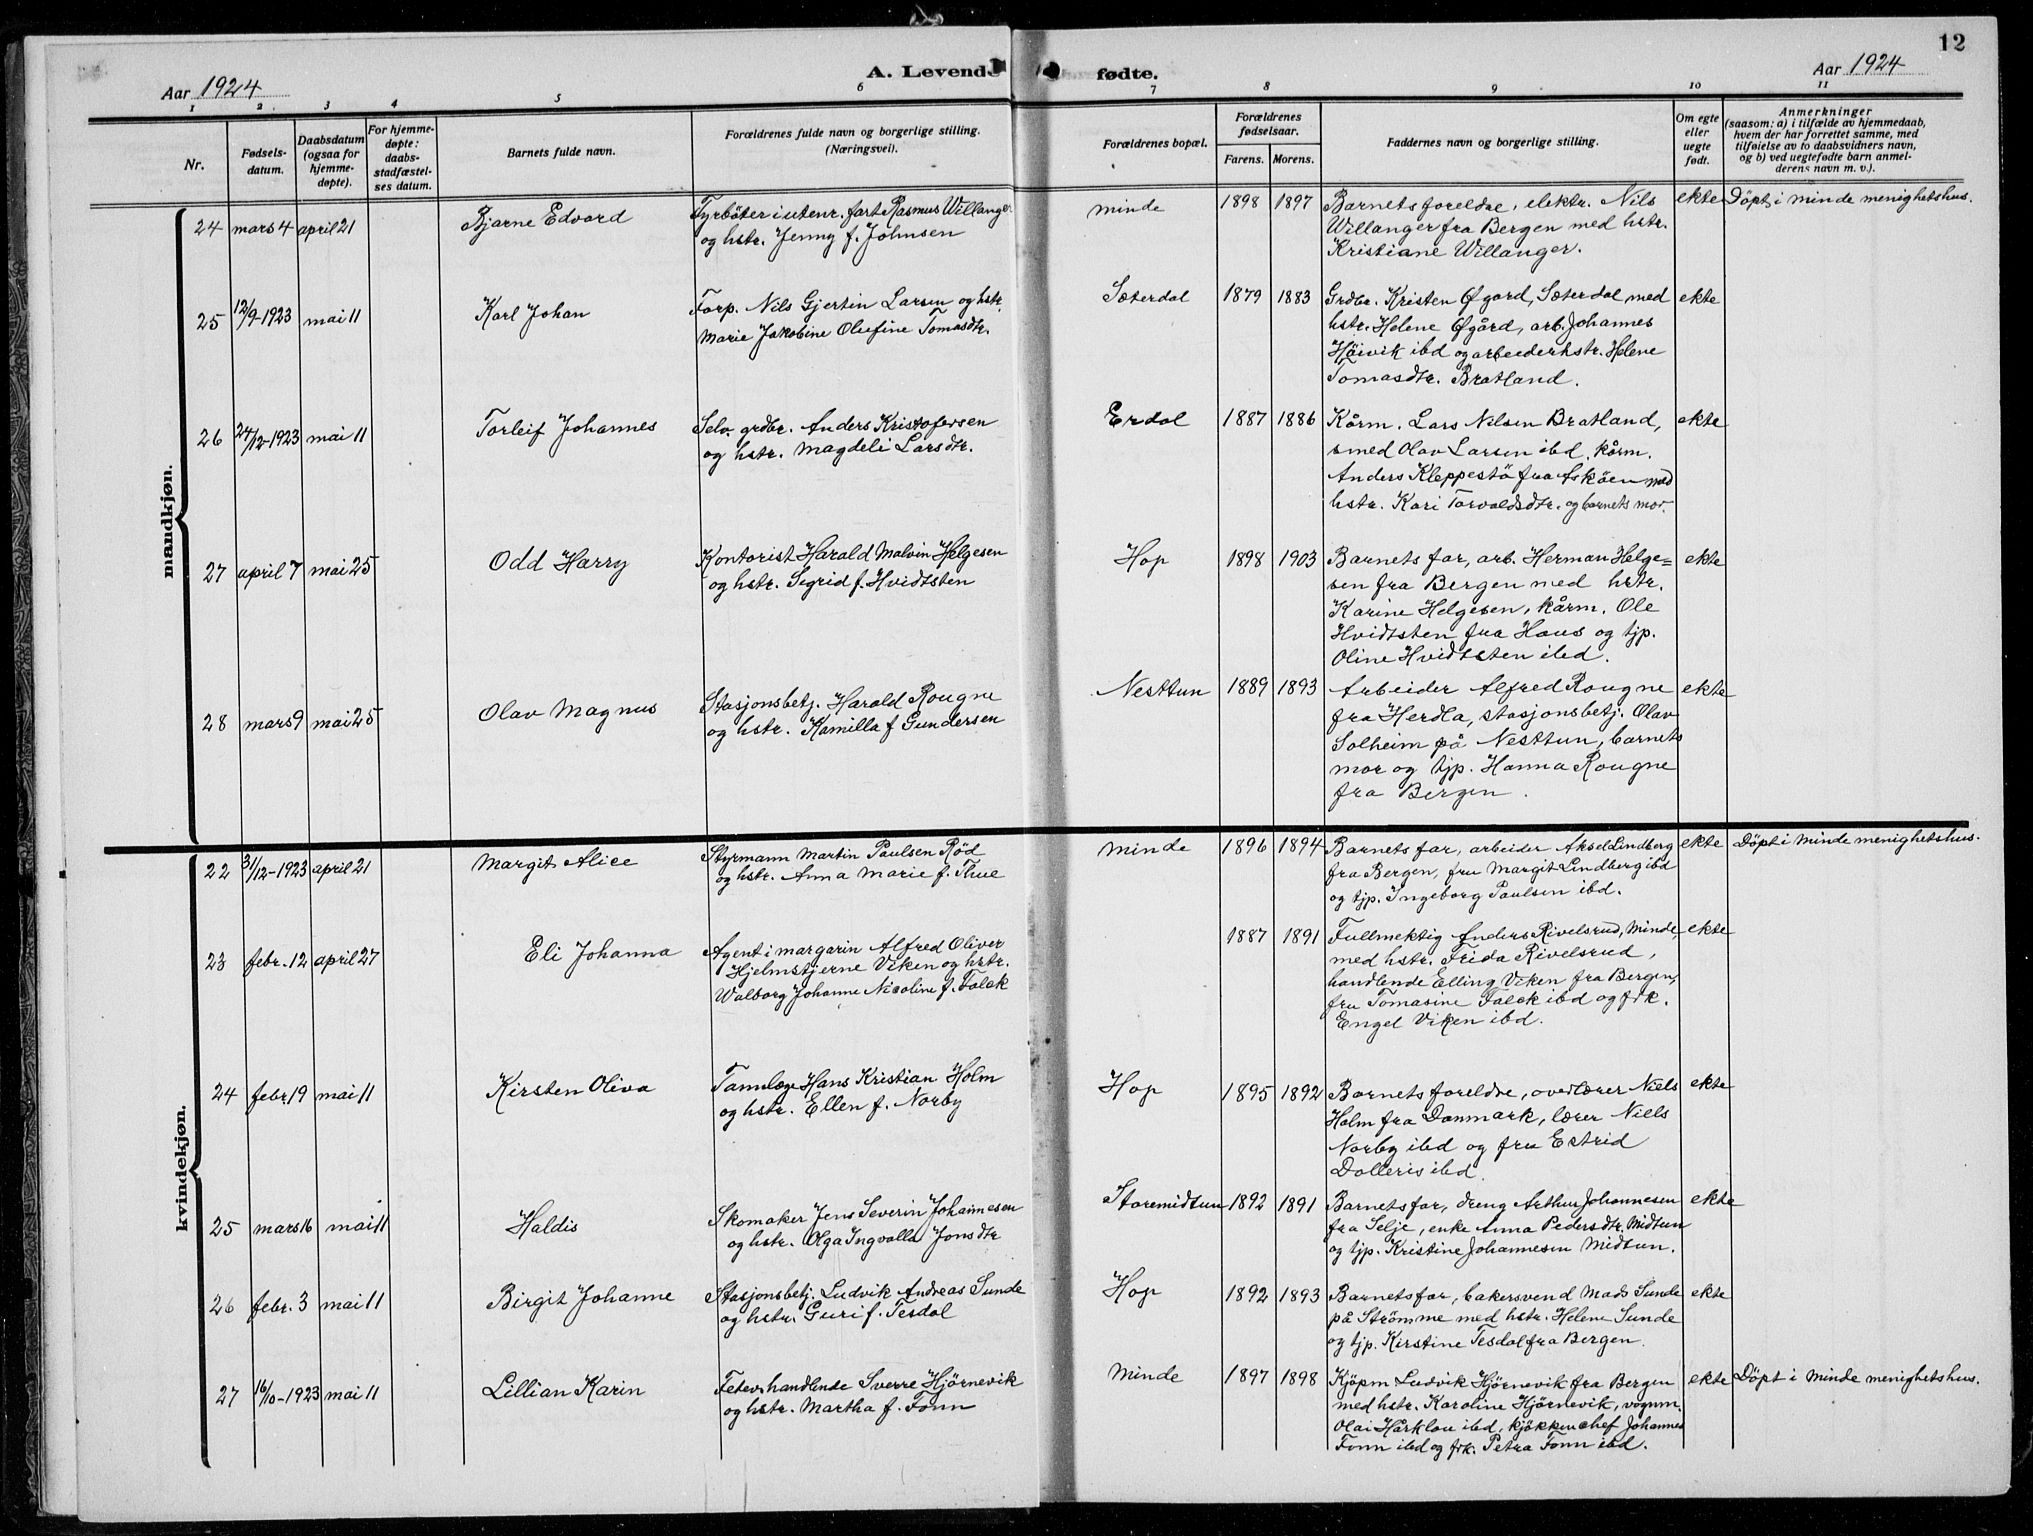 12
Aar 1924
A. Levende fødte.
Aar 1924
1 2 3 4 5 6 7 8 9 10 11
Nr.
Fødsels-
datum.
Daabsdatum
(ogsaa for
hjemme-
døpte).
For hjemme-
døpte:
daabs-
stadfæstel-
ses datum.
Barnets fulde navn.
Forældrenes fulde navn og borgerlige stilling.
(Næringsvei).
Forældrenes bopæl.
Forældrenes
fødselsaar.
Farens. Morens.
Faddernes navn og borgerlige stilling.
Om egte
eller
uegte
født.
Anmerkninger
(saasom: a) i tilfælde av hjemmedaab,
hvem der har forrettet samme, med
tilføielse av to daabsvidners navn,
og b) ved uegtefødte barn anmel-
derens navn m. v.).
mandkjøn.
24 mars 4 april 21 Bjarne Edvard
Fyrböter i utenr. fart Rasmus Willanger
og hstr. Jenny f. Johnsen
Minde 1898 1897
Barnets foreldre, elektr. Nils
Willanger fra Bergen med hstr.
Kristiane Willanger.
ekte Döpt i Minde menighetshus.
25 12/9-1923 mai 11 Karl Johan
Forp. Nils Gjertin Larsen og hstr.
Marie Jakobine Olufine Tomasdtr.
Sæterdal 1879 1883
Grdbr. Kristen Øgard, Sæterdal med
hstr. Helene Øgård, arb. Johannes
Höivik ibd og arbeiderhstr. Helene
Tomasdtr. Bratland.
ekte
26 24/12-1923 mai 11 Torleif Johannes
Selv. grdbr. Anders Kristofersen
og hstr. Magdeli Larsdtr.
Erdal 1887 1886
Kårm. Lars Nilsen Bratland,
smed Olav Larsen ibd, kårm.
Anders Kleppestö fra Asköen med
hstr. Kari Torvaldsdtr. og barnets mor.
ekte
27 april 7 mai 25 Odd Harry
Kontorist Harald Malvin Helgesen
og hstr. Sigrid f. Hvidtsten
Hop 1898 1903
Barnets far, arb. Herman Helge=
sen fra Bergen med hstr.
Karine Helgesen, kårm. Ole
Hvidtsten fra Haus og tjp.
Oline Hvidtsten ibd.
ekte
28 mars 9 mai 25 Olav Magnus
Stasjonsbetj. Harald Rougne
og hstr. Kamilla f Gundersen
Nesttun 1889 1893
Arbeider Alfred Rougne
fra Herdla, stasjonsbetj. Olav
Solheim på Nesttun, barnets
mor og tjp. Hanna Rougne
fra Bergen.
ekte
kvindekjøn.
22 31/12-1923 april 21 Margit Alice
Styrmann Martin Paulsen Rød
og hstr. Anna Marie f. Thue
Minde 1896 1894
Barnets far, arbeider Aksel Lindberg
fra Bergen, fru Margit Lindberg ibd
og tjp. Ingeborg Paulsen ibd.
ekte Döpt i Minde menighetshus.
23 febr. 12 april 27 Eli Johanna
Agent i margarin Alfred Oliver
Hjelmstjerne Viken og hstr.
Walborg Johanne Nicoline f. Falck
1887 1891
Fullmektig Anders Rivelsrud, Minde,
med hstr. Frida Rivelsrud,
handlende Elling Viken fra Bergen,
fru Tomasine Falck ibd og frk.
Engel Viken ibd.
ekte
24 febr. 19 mai 11 Kirsten Oliva
Tannlæge Hans Kristian Holm
og hstr. Ellen f. Norby
Hop 1895 1892
Barnets foreldre, overlærer Niels
Holm fra Danmark, lærer Niels
Norby ibd og fru Estrid
Dolleris ibd
ekte
25 mars 16 mai 11 Haldis
Skomaker Jens Severin Johannesen
og hstr. Olga Ingvalla Jonsdtr
Storemidtun 1892 1891
Barnets far, dreng Arthur Johannesen
fra Selje, enke Anna Pedersdtr. Midtun
og tjp. Kristine Johannesen Midtun.
ekte
26 febr. 3 mai 11 Birgit Johanne
Stasjonsbetj. Ludvik Andreas Sunde
og hstr. Guri f. Tesdal
Hop 1892 1893
Barnets far, bakersvend Mads Sunde
på Strömme med hstr. Helene Sunde
og tjp. Kirstine Tesdal fra Bergen.
ekte
27 16/10-1923 mai 11 Lillian Karin
Fetevhandlende Sverre Hjörnevik
og hstr. Martha f. Fonn
Minde 1897 1898
Kjöpm Ludvik Hjörnevik fra Bergen
med hstr. Karoline Hjörnevik, vognm.
Olai Hårklau ibd, kjökkenchef Johannes
Fonn ibd og frk. Petra Fonn ibd.
ekte Döpt i Minde menighetshus.